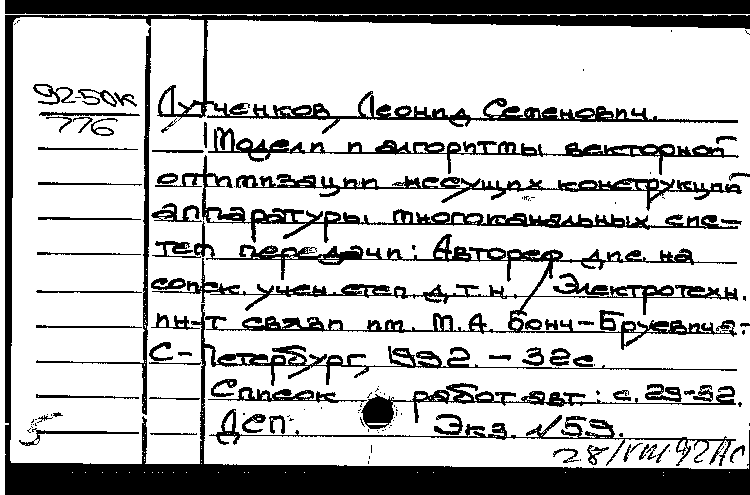 92-50К
776
Лутченков, Леонид Семенович.
Модели и алгоритмы векторной
оптимизации несущих конструкций
аппаратуры многоканальных сис-
тем передачи: Автореф. дис. на
соиск. учен. степ. д.т.н. Электротехн.
ин-т связи им. М.А. Бонч-Бруевича.-
С-Петербург, 1992. - 32с.
Список работ авт.: с. 29-32.
ДСП. Экз. №59.
5
28/VIII 92